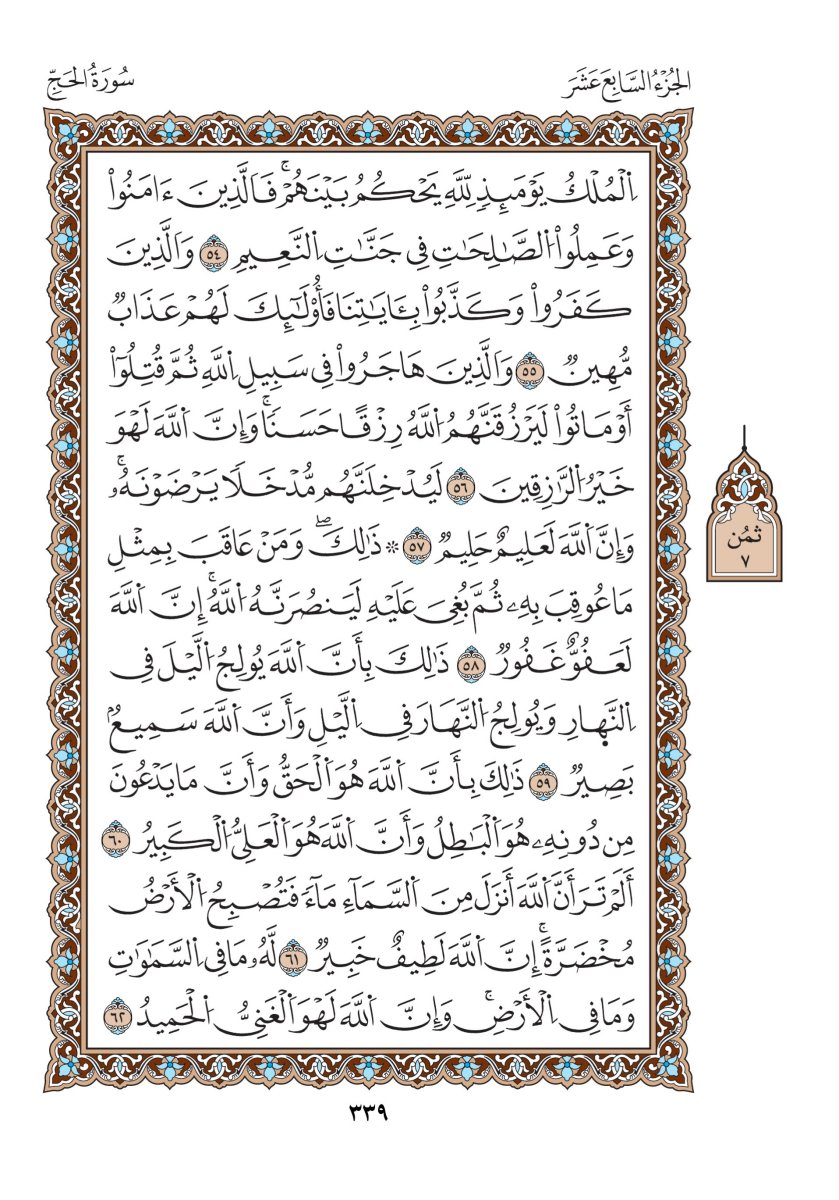 الجُزْءُ السَّابِعَ عَشَرَ
سُورَةُ الحَجِّ
اِ۬لْمُلْكُ يَوْمَئِذٖ لِّلهِ يَحْكُمُ بَيْنَهُمْۖ فَالَّذِينَ ءَامَنُواْ
وَعَمِلُواْ اُ۬لصَّٰلِحَٰتِ فِي جَنَّٰتِ اِ۬لنَّعِيمِ ٥٤ وَالَّذِينَ
كَفَرُواْ وَكَذَّبُواْ بِـَٔايَٰتِنَا فَأُوْلَٰٓئِكَ لَهُمْ عَذَابٞ
مُّهِينٞ ٥٥ وَالَّذِينَ هَاجَرُواْ فِي سَبِيلِ اِ۬للَّهِ ثُمَّ قُتِلُوٓاْ
أَوْ مَاتُواْ لَيَرْزُقَنَّهُمُ اُ۬للَّهُ رِزْقاً حَسَناٗۖ وَإِنَّ اَ۬للَّهَ لَهْوَ
خَيْرُ اُ۬لرَّٰزِقِينَ ٥٦ لَيُدْخِلَنَّهُم مُّدْخَلاٗ يَرْضَوْنَهُۥۖ
وَإِنَّ اَ۬للَّهَ لَعَلِيمٌ حَلِيمٞ ٥٧ ۞ ذَٰلِكَۖ وَمَنْ عَاقَبَ بِمِثْلِ
مَا عُوقِبَ بِهِۦ ثُمَّ بُغِيَ عَلَيْهِ لَيَنصُرَنَّهُ اُ۬للَّهُۖ إِنَّ اَ۬للَّهَ
لَعَفُوٌّ غَفُورٞ ٥٨ ذَٰلِكَ بِأَنَّ اَ۬للَّهَ يُولِجُ اُ۬لَّيْلَ فِي
اِ۬لنَّهارِ وَيُولِجُ اُ۬لنَّهَارَ فِي اِ۬لَّيْلِ وَأَنَّ اَ۬للَّهَ سَمِيعُۢ
بَصِيرٞ ٥٩ ذَٰلِكَ بِأَنَّ اَ۬للَّهَ هُوَ اَ۬لْحَقُّ وَأَنَّ مَا يَدْعُونَ
مِن دُونِهِۦ هُوَ اَ۬لْبَٰطِلُ وَأَنَّ اَ۬للَّهَ هُوَ اَ۬لْعَلِيُّ اُ۬لْكَبِيرُ ٦٠
أَلَمْ تَرَ أَنَّ اَ۬للَّهَ أَنزَلَ مِنَ اَ۬لسَّمَآءِ مَآءٗ فَتُصْبِحُ اُ۬لْأَرْضُ
مُخْضَرَّةًۖ إِنَّ اَ۬للَّهَ لَطِيفٌ خَبِيرٞ ٦١ لَّهُۥ مَا فِي اِ۬لسَّمَٰوَٰتِ
وَمَا فِي اِ۬لْأَرْضِۖ وَإِنَّ اَ۬للَّهَ لَهْوَ اَ۬لْغَنِيُّ اُ۬لْحَمِيدُ ٦٢
ثمُن
٧
٣٣٩